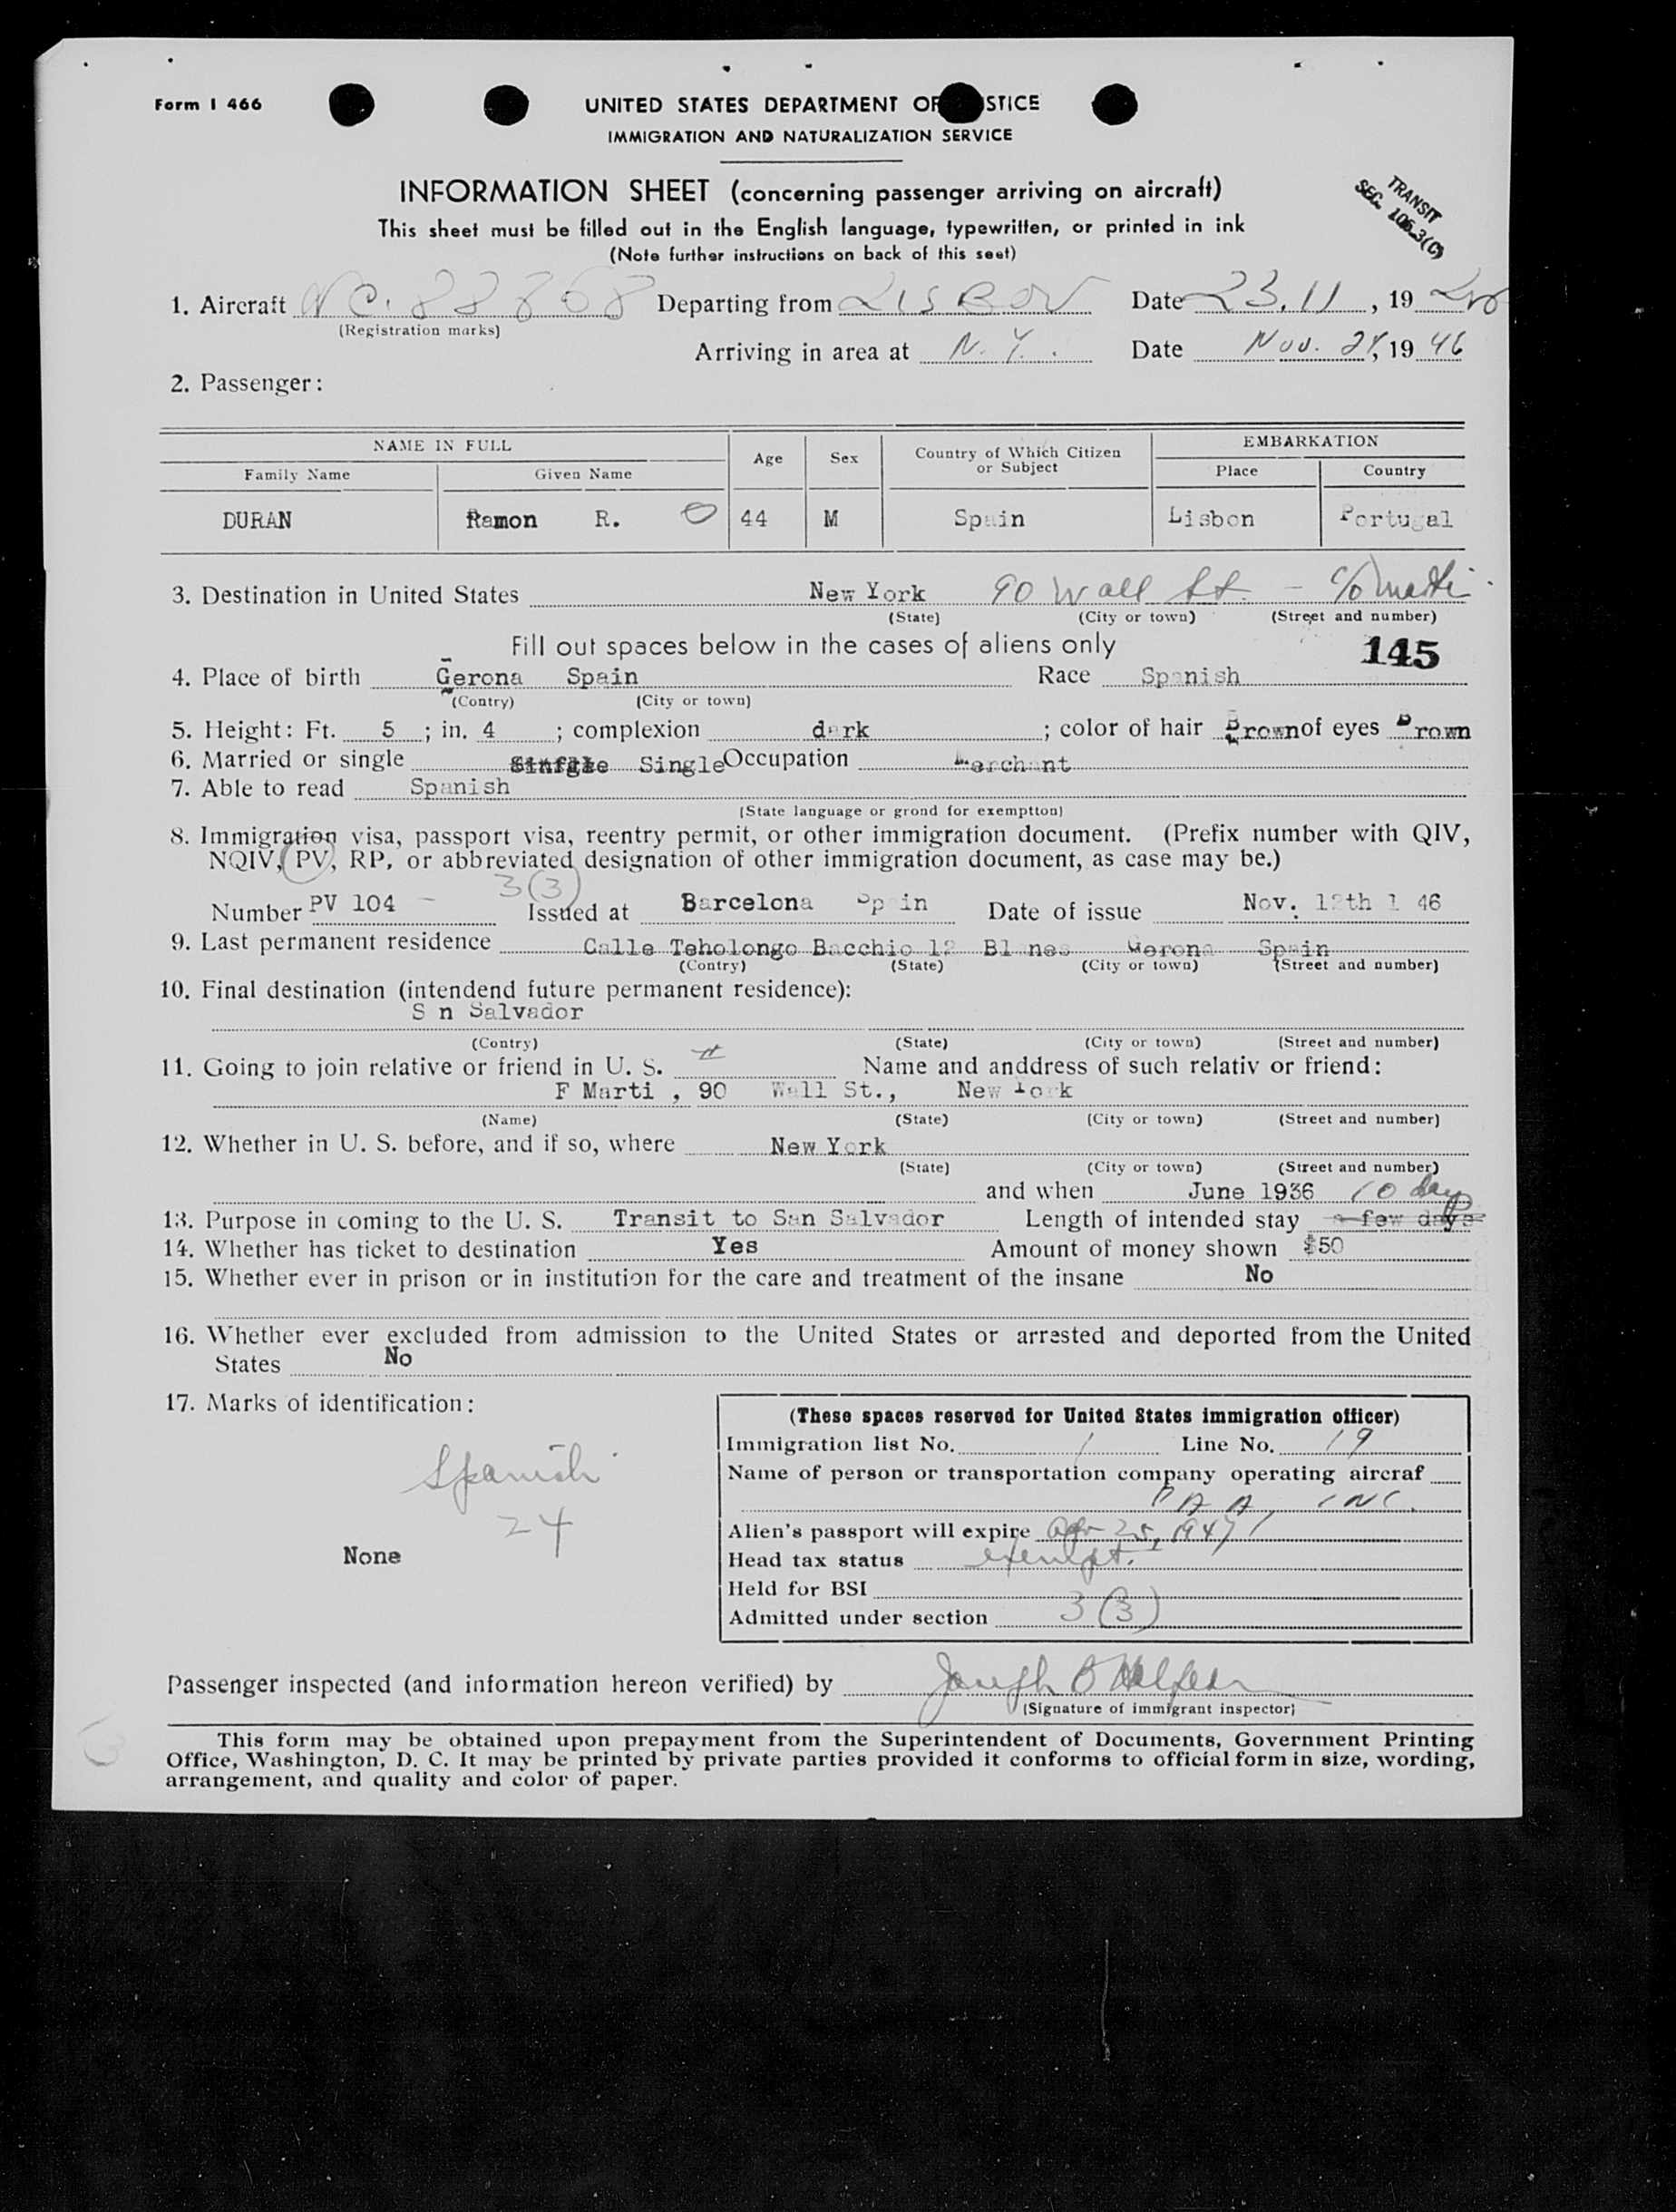 Form I 466
UNITED STATES DEPARTMENT OF STICE
IMMIGRATION AND NATURALIZATION SERVICE
INFORMATION SHEET (concerning passenger arriving on aircraft)
TRANSIT
SEC. 106.3(C)
This sheet must be filled out in the English language, typewritten, or printed in ink
(Note further instructions on back of this seet)
1. Aircraft NC. 88868 Departing from LISBON Date 23.11, 19 46
(Registration marks)
Arriving in area at N.Y. Date Nov. 24, 19 46
2. Passenger:
NAME IN FULL Age Sex Country of Which Citizen or Subject EMBARKATION
Family Name Given Name Place Country
DURAN Ramon R. 44 M Spain Lisbon Portugal
3. Destination in United States New York 90 Wall St. - c/o Marti
(State) (City or town) (Street and number)
Fill out spaces below in the cases of aliens only
145
4. Place of birth Gerona Spain Race Spanish
(Contry) (City or town)
5. Height: Ft. 5 ; in. 4 ; complexion dark ; color of hair Brown of eyes Brown
6. Married or single Single Occupation Merchant
7. Able to read Spanish
(State language or grond for exemptton)
8. Immigration visa, passport visa, reentry permit, or other immigration document. (Prefix number with QIV,
NQIV, PV, RP, or abbreviated designation of other immigration document, as case may be.)
3(3)
Number PV 104 - Issued at Barcelona Spain Date of issue Nov. 12th 1946
9. Last permanent residence Calle Teholongo Bacchio 12 Blanes Gerona Spain
(Contry) (State) (City or town) (Street and number)
10. Final destination (intendend future permanent residence):
San Salvador
(Contry) (State) (City or towu) (Street and number)
11. Going to join relative or friend in U. S. Name and anddress of such relativ or friend:
F Marti , 90 Wall St., New York
(Name) (State) (City or town) (Street and number)
12. Whether in U. S. before, and if so, where New York
(State) (City or town) (Street and number)
and when June 1936 10 days
13. Purpose in coming to the U. S. Transit to San Salvador Length of intended stay a few days
14. Whether has ticket to destination Yes Amount of money shown $50
15. Whether ever in prison or in institution for the care and treatment of the insane No
16. Whether ever excluded from admission to the United States or arrested and deported from the United
States No
17. Marks of identification:
Spanish
24
None
(These spaces reserved for United States immigration officer)
Immigration list No. 1 Line No. 19
Name of person or transportation company operating aircraf
P A A, INC.
Alien's passport will expire Apr 25, 1947
Head tax status exempt.
Held for BSI
Admitted under section 3(3)
Passenger inspected (and information hereon verified) by Joseph B Halfern
(Signature of immigrant inspector)
This form may be obtained upon prepayment from the Superintendent of Documents, Government Printing
Office, Washington, D. C. It may be printed by private parties provided it conforms to official form in size, wording,
arrangement, and quality and color of paper.